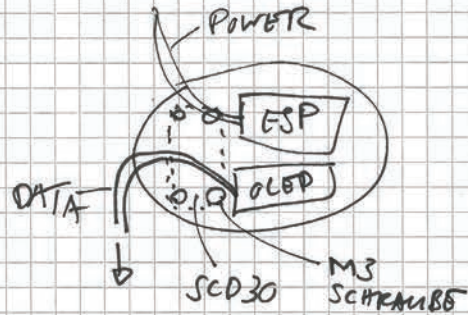 POWER
ESP
OLED
DATA
SCD30
M3
SCHRAUBE